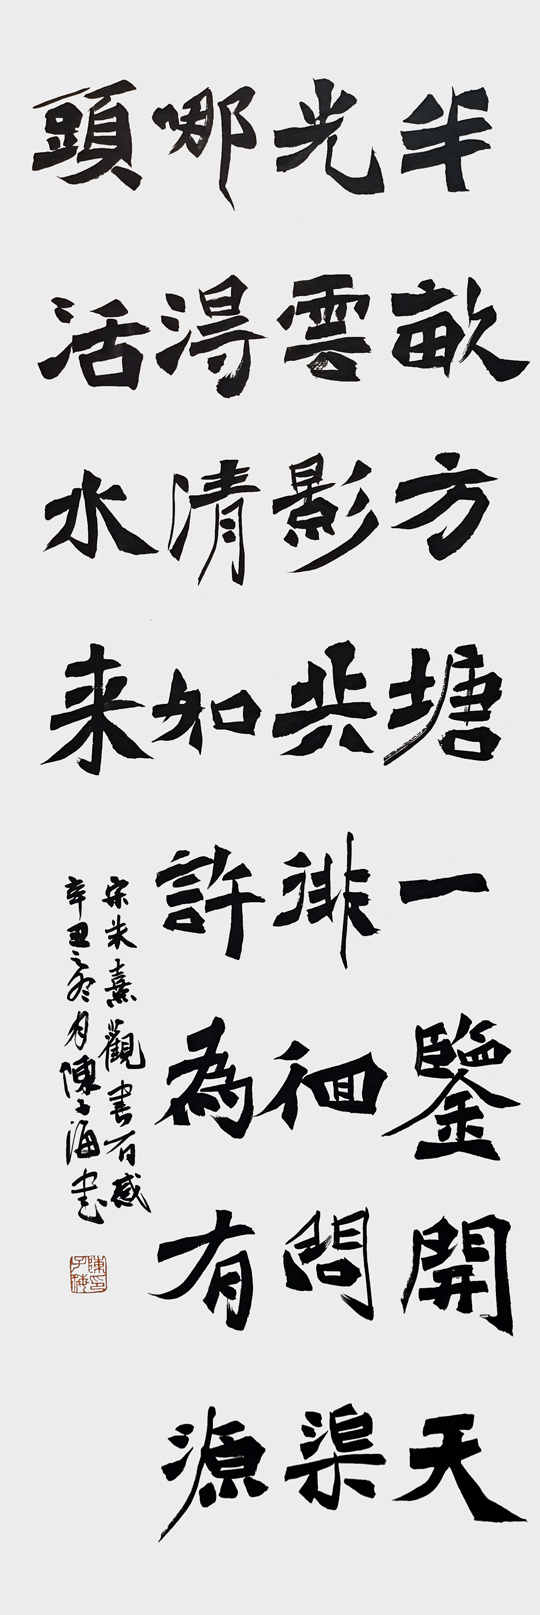 半畝方塘一鑒開天
光雲影共徘徊問渠
哪得清如許為有源
頭活水来
宋朱熹觀書有感
辛丑之冬月陳子海书